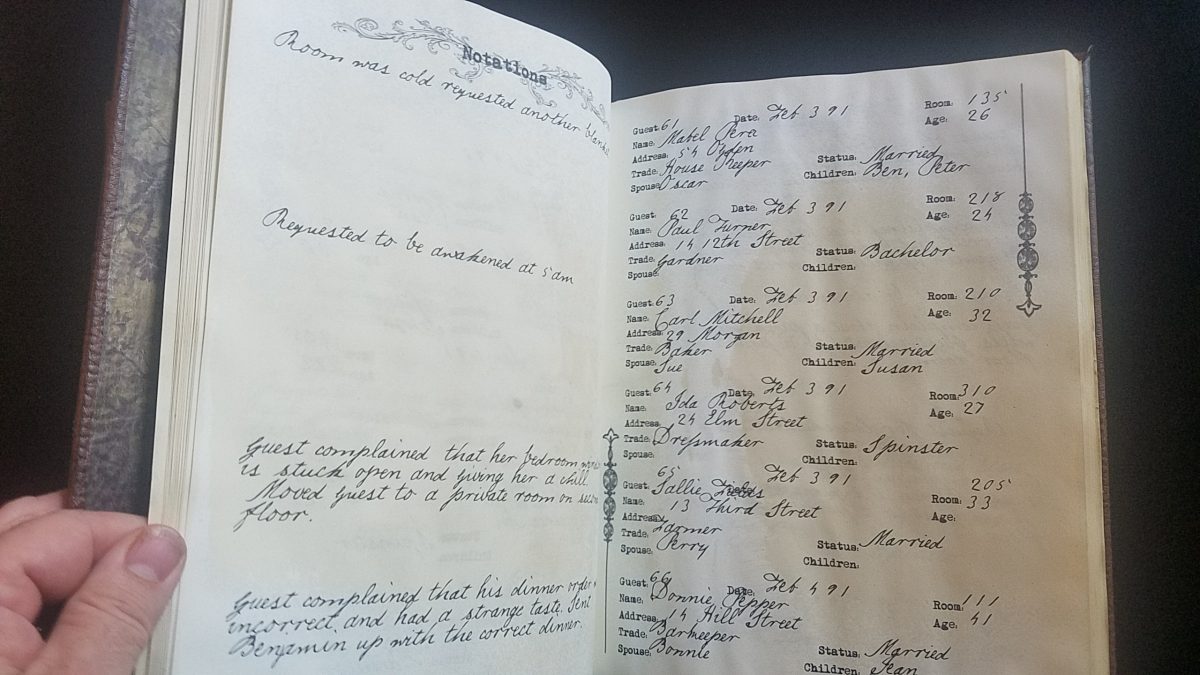 Notations
Room was cold requested another
Requested to be awakened at 5 am
Guest complained that her bedroom
is stuck open and giving her a chill
Moved guest to a private room on
floor.
Guest complained that his dinner order
incorrect and had a strange taste. Sent
Benjamin up with the correct dinner.
Guest: 61 Date: Feb 3 91 Room: 135
Name: Mabel Pera Age: 26
Address: 54 Ogden
Trade: House Keeper Status: Married
Spouse: Oscar Children: Ben, Peter
Guest: 62 Date: Feb 3 91 Room: 218
Name: Paul Turner Age: 24
Address: 14 12th Street
Trade: Gardner Status: Bachelor
Spouse: Children:
Guest: 63 Date: Feb 3 91 Room: 210
Name: Carl Mitchell Age: 32
Address: 29 Morgan
Trade: Baker Status: Married
Spouse: Sue Children: Susan
Guest: 64 Date: Feb 3 91 Room: 310
Name: Ida Roberts Age: 27
Address: 24 Elm Street
Trade: Dreſsmaker Status: Spinster
Spouse: Children:
Guest: 65 Date: Feb 3 91 Room: 205
Name: Sallie Fields Age: 33
Address: 13 Third Street
Trade: Farmer Status: Married
Spouse: Perry Children:
Guest: 66 Date: Feb 4 91 Room: 111
Name: Donnie Pepper Age: 41
Address: 14 Hill Street
Trade: Barkeeper Status: Married
Spouse: Bonnie Children: Jean